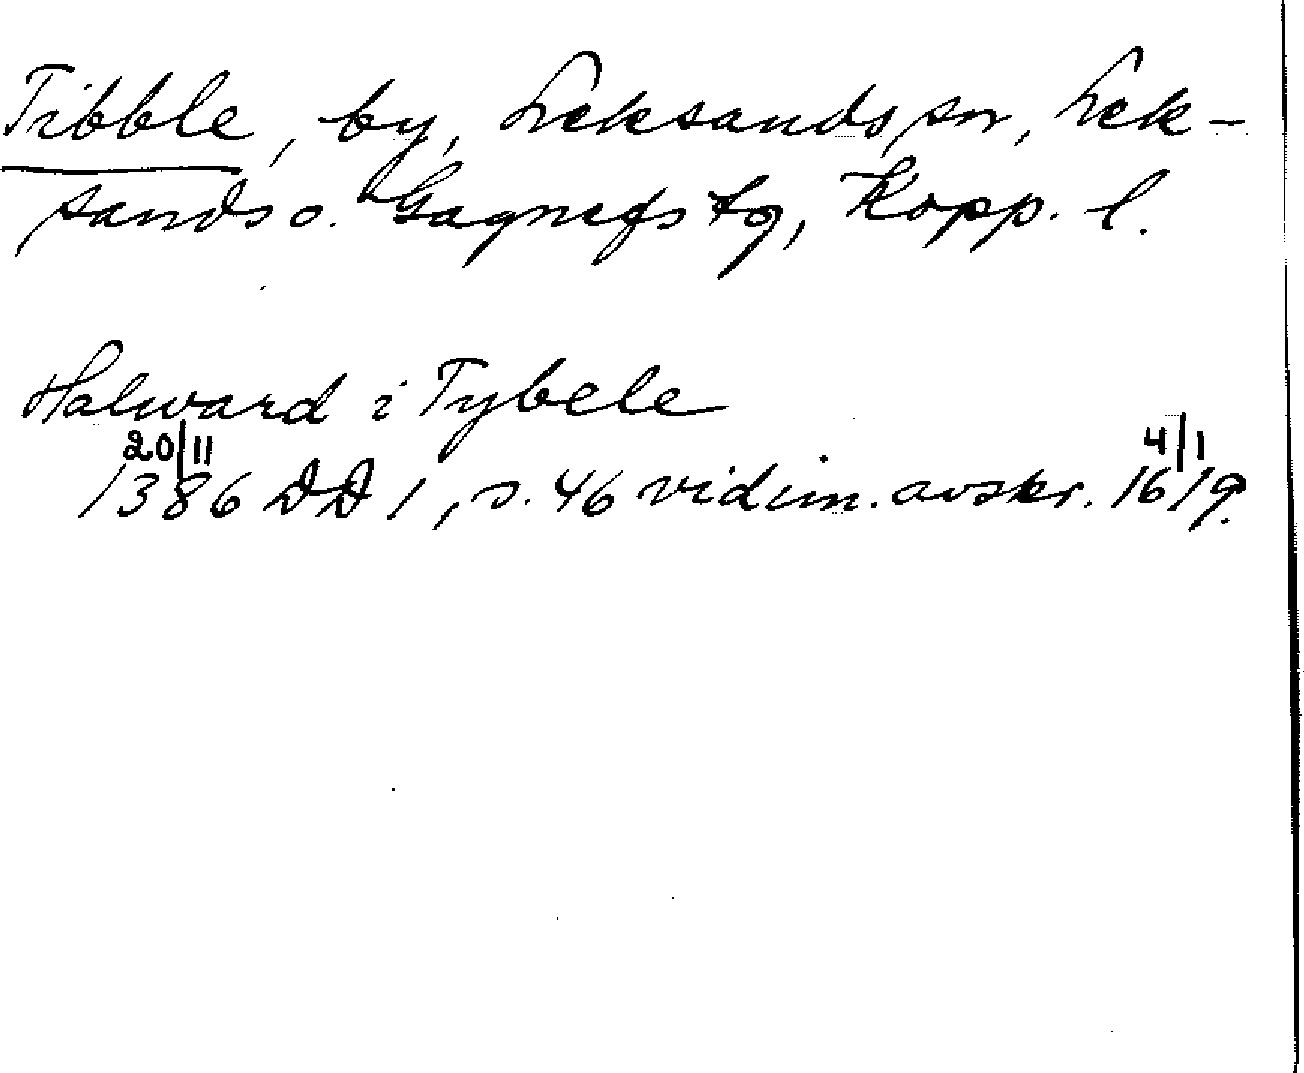 Tibble, by, Leksands sn, Lek-
sands o. Gagnefs tg, Kopp. l.
Halward i Tybele
20/11 4/1
1386 DD 1, s. 46 vidim. avskr. 1619.